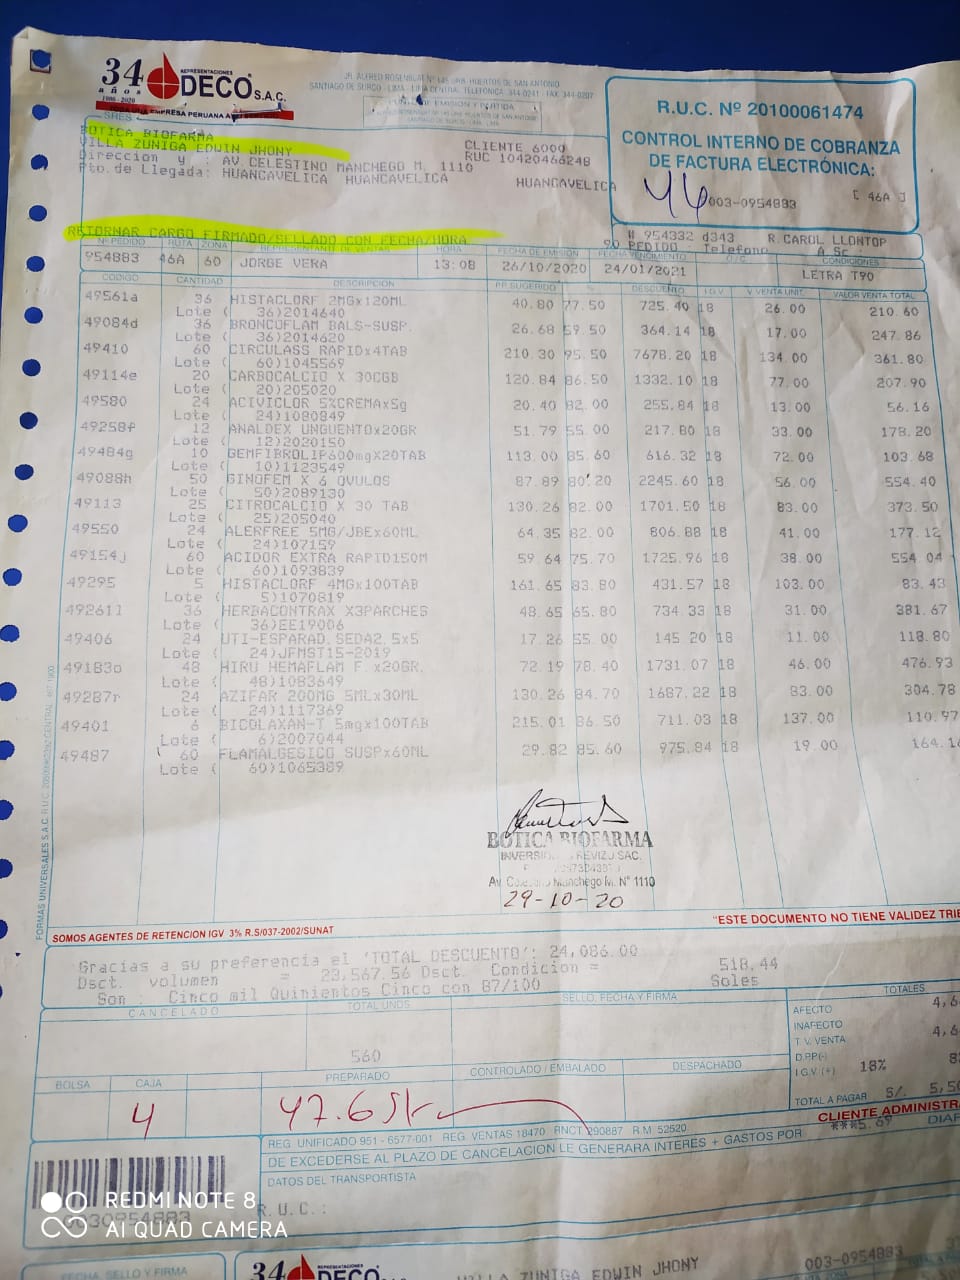 34 REPRESENTACIONES
años DECO S.A.C.
1986-2020
EMPRESA PERUANA
JR. ALFRED ROSENBLAT Nº 145 URB. HUERTOS DE SAN ANTONIO
SANTIAGO DE SURCO - LIMA - LIMA CENTRAL TELEFONICA 344-0211 FAX 344-0207
R.U.C. Nº 20100061474
CONTROL INTERNO DE COBRANZA
DE FACTURA ELECTRÓNICA:
46 003-0954883 [ 46A ]
SRES
BOTICA BIOFARMA
VILLA ZUNIGA EDWIN JHONY CLIENTE 6000
Direccion y : AV. CELESTINO MANCHEGO M. 1110 RUC 10420466248
Pto.de Llegada: HUANCAVELICA HUANCAVELICA HUANCAVELICA
RETORNAR CARGO FIRMADO/SELLADO CON FECHA/HORA
# 954332 d343 R.CAROL LLONTOP
PEDIDO - Telefono
Nº PEDIDO RUTA ZONA REPRESENTANTE DE VENTAS HORA FECHA DE EMISIÓN FECHA VENCIMIENTO O/C CONDICIONES
954883 46A 60 JORGE VERA 13:08 26/10/2020 24/01/2021 LETRA T90
CODIGO CANTIDAD DESCRIPCION PP. SUGERIDO % DESCUENTO I.G.V. V.VENTA UNIT. VALOR VENTA TOTAL
49561a 36 HISTACLORF 2MGx120ML 40.80 77.50 725.40 18 26.00 210.60
Lote ( 36)2014640
49084d 36 BRONCOFLAM BALS-SUSP. 26.68 59.50 364.14 18 17.00 247.86
Lote ( 36)2014620
49410 60 CIRCULASS RAPIDx4TAB 210.30 95.50 7678.20 18 134.00 361.80
Lote ( 60)1045569
49114e 20 CARBOCALCIO X 30CGB 120.84 86.50 1332.10 18 77.00 207.90
Lote ( 20)205020
49580 24 ACIVICLOR 5%CREMAx5g 20.40 82.00 255.84 18 13.00 56.16
Lote ( 24)1080849
49258f 12 ANALDEX UNGUENTOx20GR 51.79 55.00 217.80 18 33.00 178.20
Lote ( 12)2020150
49484g 10 GEMFIBROLIP600mgX20TAB 113.00 85.60 616.32 18 72.00 103.68
Lote ( 10)1123549
49088h 50 GINOFEM X 6 OVULOS 87.89 80.20 2245.60 18 56.00 554.40
Lote ( 50)2089130
49113 25 CITROCALCIO X 30 TAB 130.26 82.00 1701.50 18 83.00 373.50
Lote ( 25)205040
49550 24 ALERFREE 5MG/JBEx60ML 64.35 82.00 806.88 18 41.00 177.12
Lote ( 24)107159
49154j 60 ACIDOR EXTRA RAPID150M 59.64 75.70 1725.96 18 38.00 554.04
Lote ( 60)1093839
49295 5 HISTACLORF 4MGx100TAB 161.65 83.80 431.57 18 103.00 83.43
Lote ( 5)1070819
492611 36 HERBACONTRAX X3PARCHES 48.65 65.80 734.33 18 31.00 381.67
Lote ( 36)EE19006
49406 24 UTI-ESPARAD.SEDA2.5x5 17.26 55.00 145.20 18 11.00 118.80
Lote ( 24)JFMST15-2019
49183o 48 HIRU HEMAFLAM F.x20GR. 72.19 78.40 1731.07 18 46.00 476.93
Lote ( 48)1083649
49287r 24 AZIFAR 200MG 5MLx30ML 130.26 84.70 1687.22 18 83.00 304.78
Lote ( 24)1117369
49401 6 BICOLAXAN-T 5mgx100TAB 215.01 86.50 711.03 18 137.00 110.97
Lote ( 6)2007044
49487 60 FLAMALGESICO SUSPx60ML 29.82 85.60 975.84 18 19.00 164.16
Lote ( 60)1065389
BOTICA BIOFARMA
REVIZU SAC.
Av. Manchego M. N° 1110
29-10-20
SOMOS AGENTES DE RETENCION IGV 3% R.S/037-2002/SUNAT
"ESTE DOCUMENTO NO TIENE VALIDEZ TRIB
Gracias a su preferencia el 'TOTAL DESCUENTO': 24,086.00
Dsct. volumen = 23,567.56 Dsct. Condicion = 518.44
Son : Cinco mil Quinientos Cinco con 87/100 Soles
CANCELADO TOTAL UNDS SELLO, FECHA Y FIRMA TOTALES
560
AFECTO 4,6
INAFECTO
T.V. VENTA 4,6
D.PP(-)
I.G.V (+) 18% 8
TOTAL A PAGAR S/. 5,50
BOLSA CAJA PREPARADO CONTROLADO / EMBALADO DESPACHADO
4 47.65k
CLIENTE ADMINISTRA
***5.69
REG. UNIFICADO 951 - 6577-001 REG. VENTAS 18470 RNCT 290887 R.M 52520
DE EXCEDERSE AL PLAZO DE CANCELACION LE GENERARA INTERES + GASTOS POR
DATOS DEL TRANSPORTISTA
R.U.C.:
0030954883
REDMI NOTE 8
AI QUAD CAMERA
FECHA, SELLO Y FIRMA
34 REPRESENTACIONES
DECO
VILLA ZUNIGA EDWIN JHONY
003-0954883